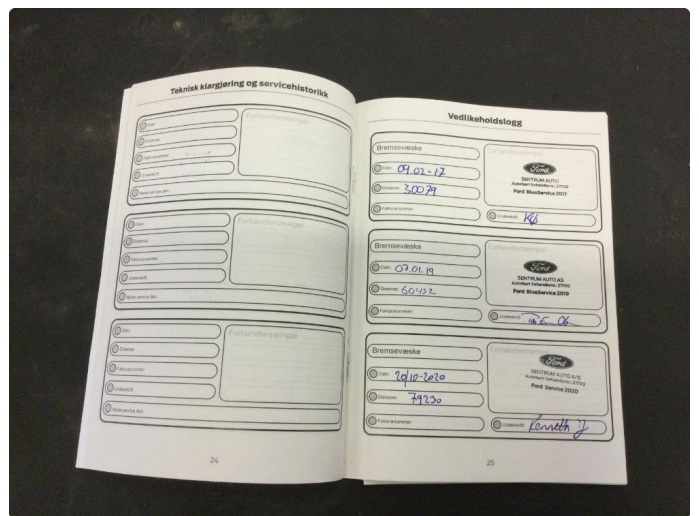 Teknisk klargjøring og servicehistorikk
Dato
Forhandlerstempel
Distanse
Fakturanummer
Underskrift
Neste service den
Dato
Forhandlerstempel
Distanse
Fakturanummer
Underskrift
Neste service den
Dato
Forhandlerstempel
Distanse
Fakturanummer
Underskrift
Neste service den
24
Vedlikeholdslogg
Bremsevæske
Dato 09.02-17
Distanse 30079
Fakturanummer
Forhandlerstempel
Ford
SENTRUM AUTO
Autorisert forhandler
Ford BlueService 2017
Underskrift
Bremsevæske
Dato 07.01.19
Distanse 60432
Fakturanummer
Forhandlerstempel
Ford
SENTRUM AUTO AS
Autorisert forhandler
Ford BlueService 2019
Underskrift
Bremsevæske
Dato 20/10-2020
Distanse 79230
Fakturanummer
Forhandlerstempel
Ford
SENTRUM AUTO A/S
Autorisert forhandler
Ford Service 2020
Underskrift Kenneth J
25